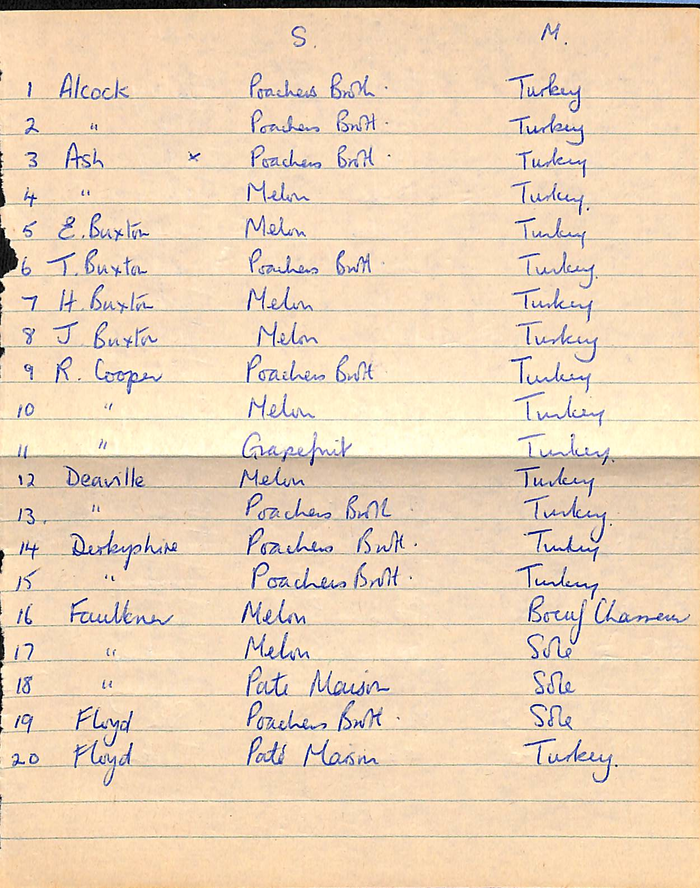 S. M.
1 Alcock Poachers Broth. Turkey
2 " Poachers Broth. Turkey
3 Ash x Poachers Broth. Turkey
4 " Melon Turkey.
5 E. Buxton Melon Turkey
6 T. Buxton Poachers Broth Turkey.
7 H. Buxton Melon Turkey
8 J Buxton Melon Turkey
9 R. Cooper Poachers Broth Turkey
10 " Melon Turkey
11 " Grapefruit Turkey.
12 Deaville Melon Turkey
13. " Poachers Broth Turkey.
14 Derbyshire Poachers Broth. Turkey
15 " Poachers Broth. Turkey
16 Faulkner Melon Boeuf Chasseur
17 " Melon Sole
18 " Pate Maison Sole
19 Floyd Poachers Broth. Sole
20 Floyd Paté Maison Turkey.